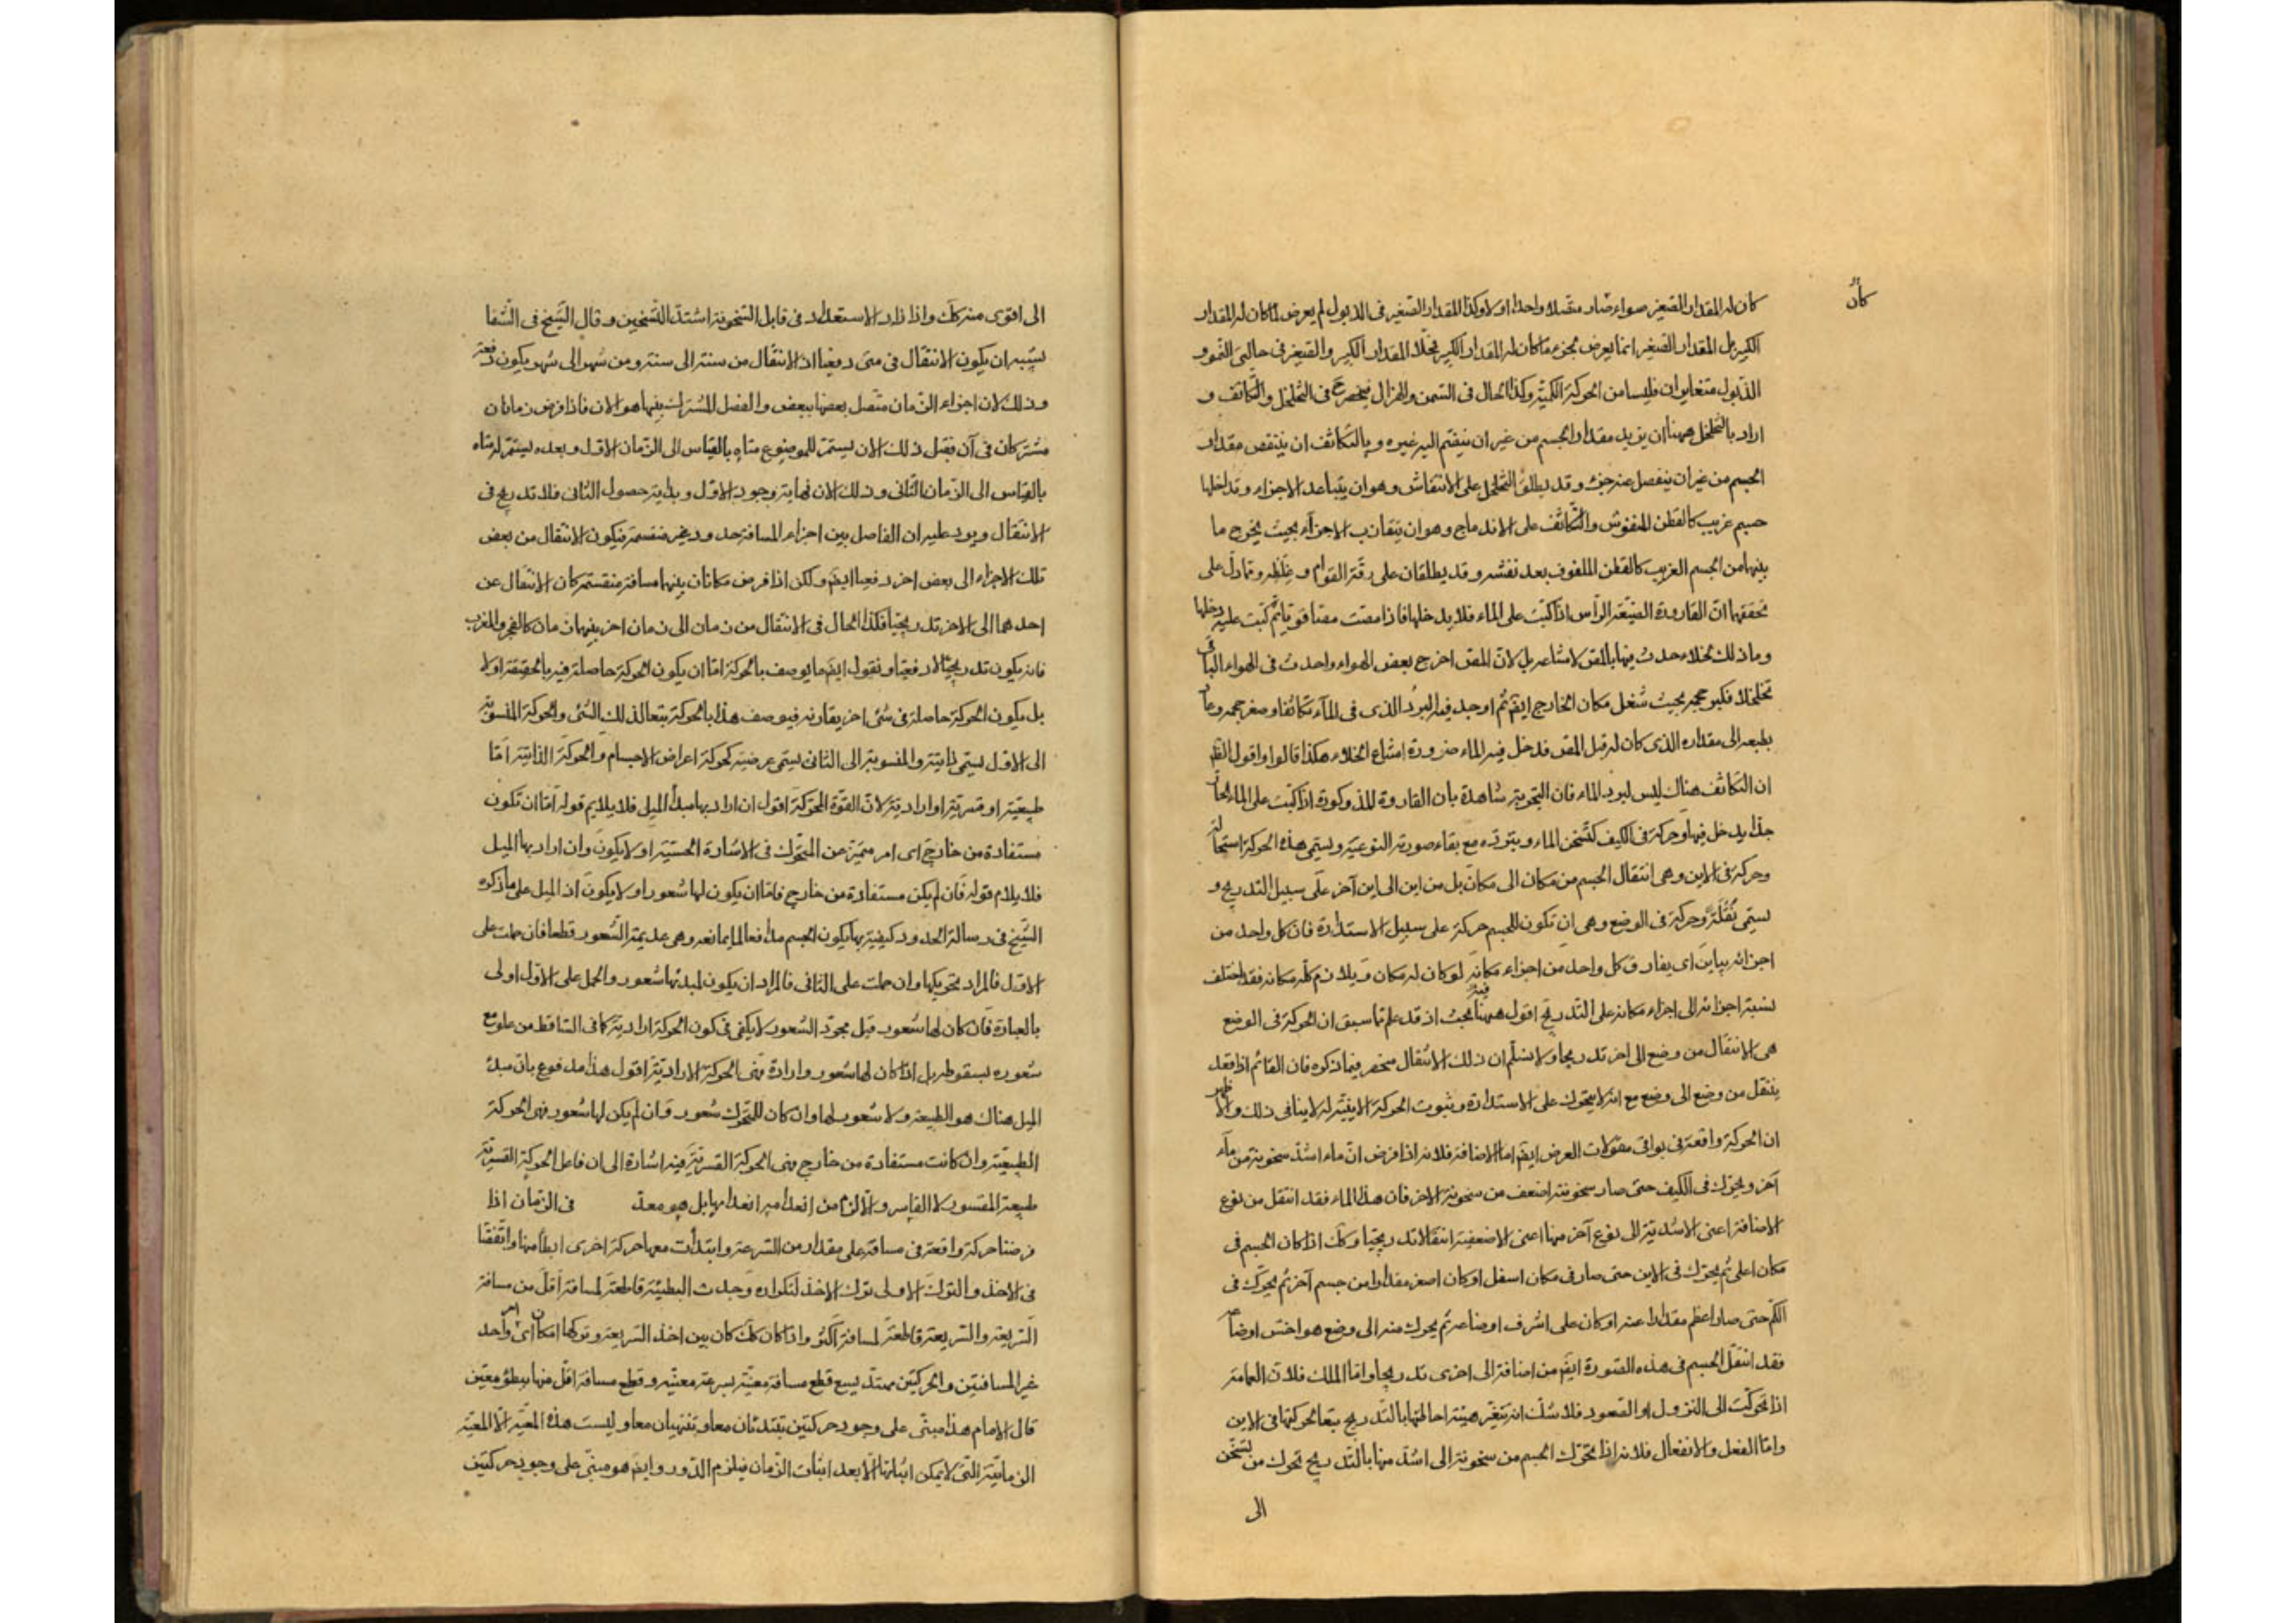 كان
كان له المقدار الصغير سواء صار متصلا واحدا او لا وكذا المقدار الصغير فى الذبول لم يعرض لما كان له المقدار
الكبير بل المقدار الصغير انما يعرض لجزء ما كان له المقدار الكبير فمحلا المقدار الكبير والصغير فى حالتى النمو و
الذبول متغايران فليسا من الحركة الكمية وكذا الحال فى السمن والهزال فينحصر ح فى التخلخل والتكاثف و
اراد بالتخلخل ههنا ان يزيد مقدار الجسم من غير ان ينضم اليه غيره وبالتكاثف ان ينتقص مقدار
الجسم من غير ان ينفصل عنه جزء وقد يطلق التخلخل على الانتفاش وهو ان يتباعد الاجزاء وتداخلها
جسم غريب كالقطن المنفوش والتكاثف على الاندماج وهو ان يتقارب الاجزاء بحيث يخرج ما
بينها من الجسم الغريب كالقطن الملفوف بعد نفشه وقد يطلقان على رقة القوام وغلظه ومما دل على
تحققهما ان القارورة الضيقة الراس اذا كبت على الماء فلا يدخلها فاذا مصت مصا قويا ثم كبت عليه دخلها
وما ذلك لخلاء حدث فيها بالمص لامتناعه بل لان المص اخرج بعض الهواء واحدث فى الهواء الباقى
تخلخلا فكبر حجمه بحيث شغل مكان الخارج ايضم ثم اوجد فيه البرد الذى فى الماء تكاثفا وصغر حجمه وعاد
بطبعه الى مقداره الذى كان له قبل المص فدخل فيه الماء ضرورة امتناع الخلاء هكذا قالوا واقول الظ
ان التكاثف هناك ليس لبرد الماء فان التجربة شاهدة بان القارورة المذكورة اذا كبت على الماء الحار
جدا يدخل فيها وحركة فى الكيف كتسخن الماء وتبرده مع بقاء صورته النوعية ويسمى هذه الحركة استحالة
وحركة فى الاين وهى انتقال الجسم من مكان الى مكان بل من اين الى اين آخر على سبيل التدريج و
يسمى نقلة وحركة فى الوضع وهى ان تكون للجسم حركة على سبيل الاستدارة فان كل واحد من
اجزائه يباين اى يفارق كل واحد من اجزاء مكانه لو كان له مكان ويلازم كله مكانه فقد اختلف
نسبة اجزائه الى اجزاء مكانه على التدريج اقول ههنا بحث اذ قد علم مما سبق ان الحركة فى الوضع
هى الانتقال من وضع الى اخر تدريجا ولا نسلم ان ذلك الانتقال منحصر فيما ذكره فان القائم اذا قعد
ينتقل من وضع الى وضع مع انه لا يتحرك على الاستدارة وثبوت الحركة الاينية له لا ينافى ذلك والظاهر
ان الحركة واقعة فى بواقى مقولات العرض ايضم اما الاضافة فلانه اذا فرض ان ماء اشد سخونة من ماء
آخر ويتحرك فى الكيف حتى صار سخونته اضعف من سخونة الاخر فان هذا الماء فقد انتقل من نوع
الاضافة اعنى الاشدية الى نوع آخر منها اعنى الاضعفية انتقالا تدريجيا وكك اذا كان الجسم فى
مكان اعلى ثم يتحرك فى الاين حتى صار فى مكان اسفل او كان اصغر مقدارا من جسم آخر ثم يتحرك فى
الكم حتى صار اعظم مقدارا عنه او كان على اشرف اوضاعه ثم يحرك منه الى وضع هو اخس اوضاعه
فقد انتقل الجسم فى هذه الصورة ايضم من اضافة الى اخرى تدريجا واما الملك فلان العمامة
اذا تحركت الى النزول او الصعود فلا شك انه تتغير هيئة احاطتها بالتدريج تبعا لحركتها فى الاين
واما الفعل والانفعال فلانه اذا تحرك الجسم من سخونة الى اشد منها بالتدريج تحرك من تسخن
الى
الى اقوى منه كك واذا ازداد الاستعداد فى قابل السخونة اشتد التسخين وقال الشيخ فى الشفا
يشبه ان يكون الانتقال فى متى دفعيا اذ الانتقال من سنة الى سنة ومن شهر الى شهر يكون دفعة
وذلك لان اجزاء الزمان متصل بعضها ببعض والفصل المشترك بينها هو الان فاذا فرض زمانان
مشتركان فى آن فقبل ذلك الان يستمر للموضوع متاه بالقياس الى الزمان الاول وبعده يستمر له متاه
بالقياس الى الزمان الثانى وذلك الان نهاية وجود الاول وبداية حصول الثانى فلا تدريج فى
الانتقال ويرد عليه ان الفاصل بين اجزاء المسافة حدود غير منقسمة فيكون الانتقال من بعض
تلك الاجزاء الى بعض اخر دفعيا ايضم ولكن اذا فرض مكانان بينهما مسافة منقسمة كان الانتقال عن
احدهما الى الاخر تدريجيا فكذا الحال فى الانتقال من زمان الى زمان اخر بينهما زمان كالفجر والمغرب
فانه يكون تدريجيا لا دفعيا ونقول ايضم ما يوصف بالحركة اما ان يكون الحركة حاصلة فيه بالحقيقة او لا
بل يكون الحركة حاصلة فى شئ اخر يقارنه فيوصف هذا بالحركة تبعا لذلك الشئ والحركة المنسوبة
الى الاول يسمى ذاتية والمنسوبة الى الثانى يسمى عرضية كحركة اعراض الاجسام والحركة الذاتية اما
طبيعية او قسرية او ارادية لان القوة المحركة اقول ان اراد بها مبدأ الميل فلا يلايم قوله اما ان تكون
مستفادة من خارج اى امر متميز عن المتحرك فى الاشارة الحسية او لا يكون وان اراد بها الميل
فلا يلايم قوله فان لم يكن مستفادة من خارج فاما ان يكون لها شعور او لا يكون اذ الميل على ما ذكره
الشيخ فى رسالة الحدود كيفية بها يكون الجسم مدافعا لما يمانعه وهى عديمة الشعور قطعا فان حملت على
الاول فالمراد تحريكها وان حملت على الثانى فالمراد ان يكون لمبدئها شعور والحمل على الاول اولى
بالعبارة فان كان لها شعور قيل مجرد الشعور لا يكفى فى كون الحركة ارادية كما فى الساقط من علو مع
شعوره بسقوطه بل اذا كان لها شعور وارادة فهى الحركة الارادية اقول هذا مدفوع بان مبدأ
الميل هناك هو الطبيعة ولا شعور لها وان كان للمتحرك شعور وان لم يكن لها شعور فهى الحركة
الطبيعية وان كانت مستفادة من خارج فهى الحركة القسرية فيه اشارة الى ان فاعل الحركة القسرية
طبيعة المقسور لا القاسر والا لزم من انعدامه انعدامها بل هو معد فى الزمان اذا
فرضنا حركة واقعة فى مسافة على مقدار من السرعة وابتدأت معها حركة اخرى ابطأ منها واتفقتا
فى الاخذ والترك الاولى ترك الاخذ لتكراره وجدت البطيئة قاطعة لمسافة اقل من مسافة
السريعة والسريعة قاطعة لمسافة اكثر واذا كان كك كان بين اخذ السريعة وتركها امكان اى امر واحد
غير المسافتين والحركتين ممتد يسع قطع مسافة معينة بسرعة معينة وقطع مسافة اقل منها ببطؤ معين
قال الامام هذا مبنى على وجود حركتين تبتدئان معا وتنتهيان معا وليست هذه المعية الا المعية
الزمانية التى لا يمكن اثباتها الا بعد اثبات الزمان فيلزم الدور وايضم هو مبنى على وجود حركتين